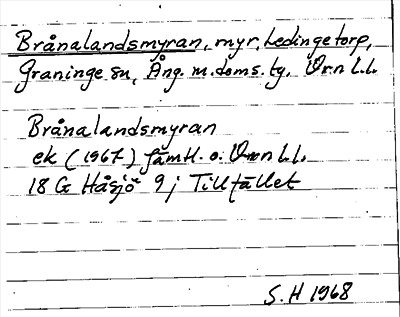 Brånalandsmyran, myr, Ledingetorp,
Graninge sn, Ång. m.doms. tg. V.rn l.l.
Brånalandsmyran
ek (1967) Jämtl. o. V.rn l.l.
18 G Håsjö 9 j Tillfället
S. H 1968